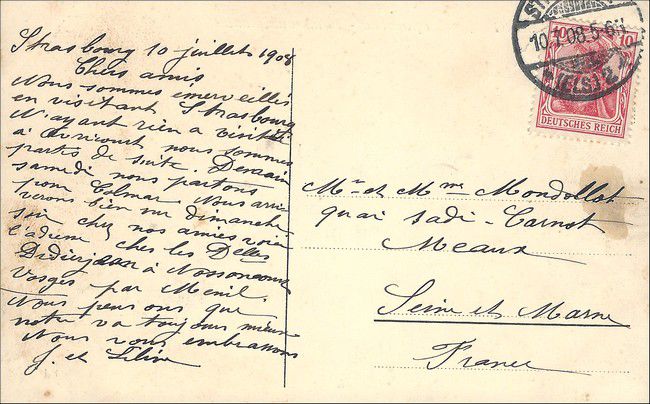 Strasbourg 10 juillet 1908
Chers amis
Nous sommes émerveillés
en visitant Strasbourg
N'ayant rien a visiter
à Avricourt nous sommes
partis de suite. Demain
samedi nous partons
pour Colmar. Nous arri
verons bien sur dimanche
soir chez nos amies voici
l'adresse chez les Delles
Didierjean à Nossoncourt
Vosges par Ménil.
Nous pensons que
notre va toujours mieux
Nous vous embrassons
J. et
Mr et Mme Mondollot
quai Sadi-Carnot
Meaux
Seine et Marne
France
ST
10.7.08.5-6
(ELS)
10 10
DEUTSCHES REICH